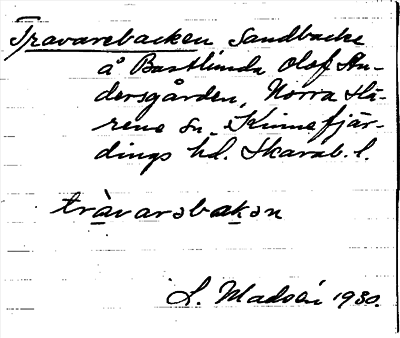 Travarebacken Sandbacke
å Bastlunda Olof An-
dersgården, Norra Hä-
rene sn. Kinnefjär-
dings hd. Skarab. l.
tràvarəbakən
L. Madsén 1930.